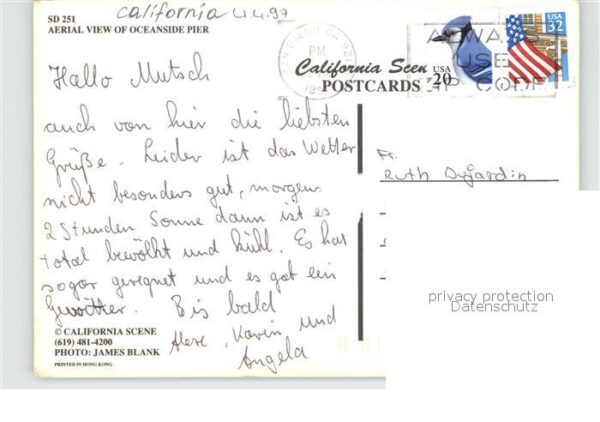 california 4.4.97
SD 251
AERIAL VIEW OF OCEANSIDE PIER
Hallo Mutsch
auch von hier die liebsten
Grüße. Leider ist das Wetter
nicht besonders gut, morgens
2 Stunden Sonne dann ist es
total bewölkt und kühl. Es hat
sogar geregnet und es gab ein
Gewitter. Bis bald
Karin und
Angela
© CALIFORNIA SCENE
(619) 481-4200
PHOTO: JAMES BLANK
PRINTED IN HONG KONG
PM
California Scen
POSTCARDS
USA
20
USA
32
ALWA
USE
ZIP CODE
Fr.
Ruth Dujardin
privacy protection
Datenschutz